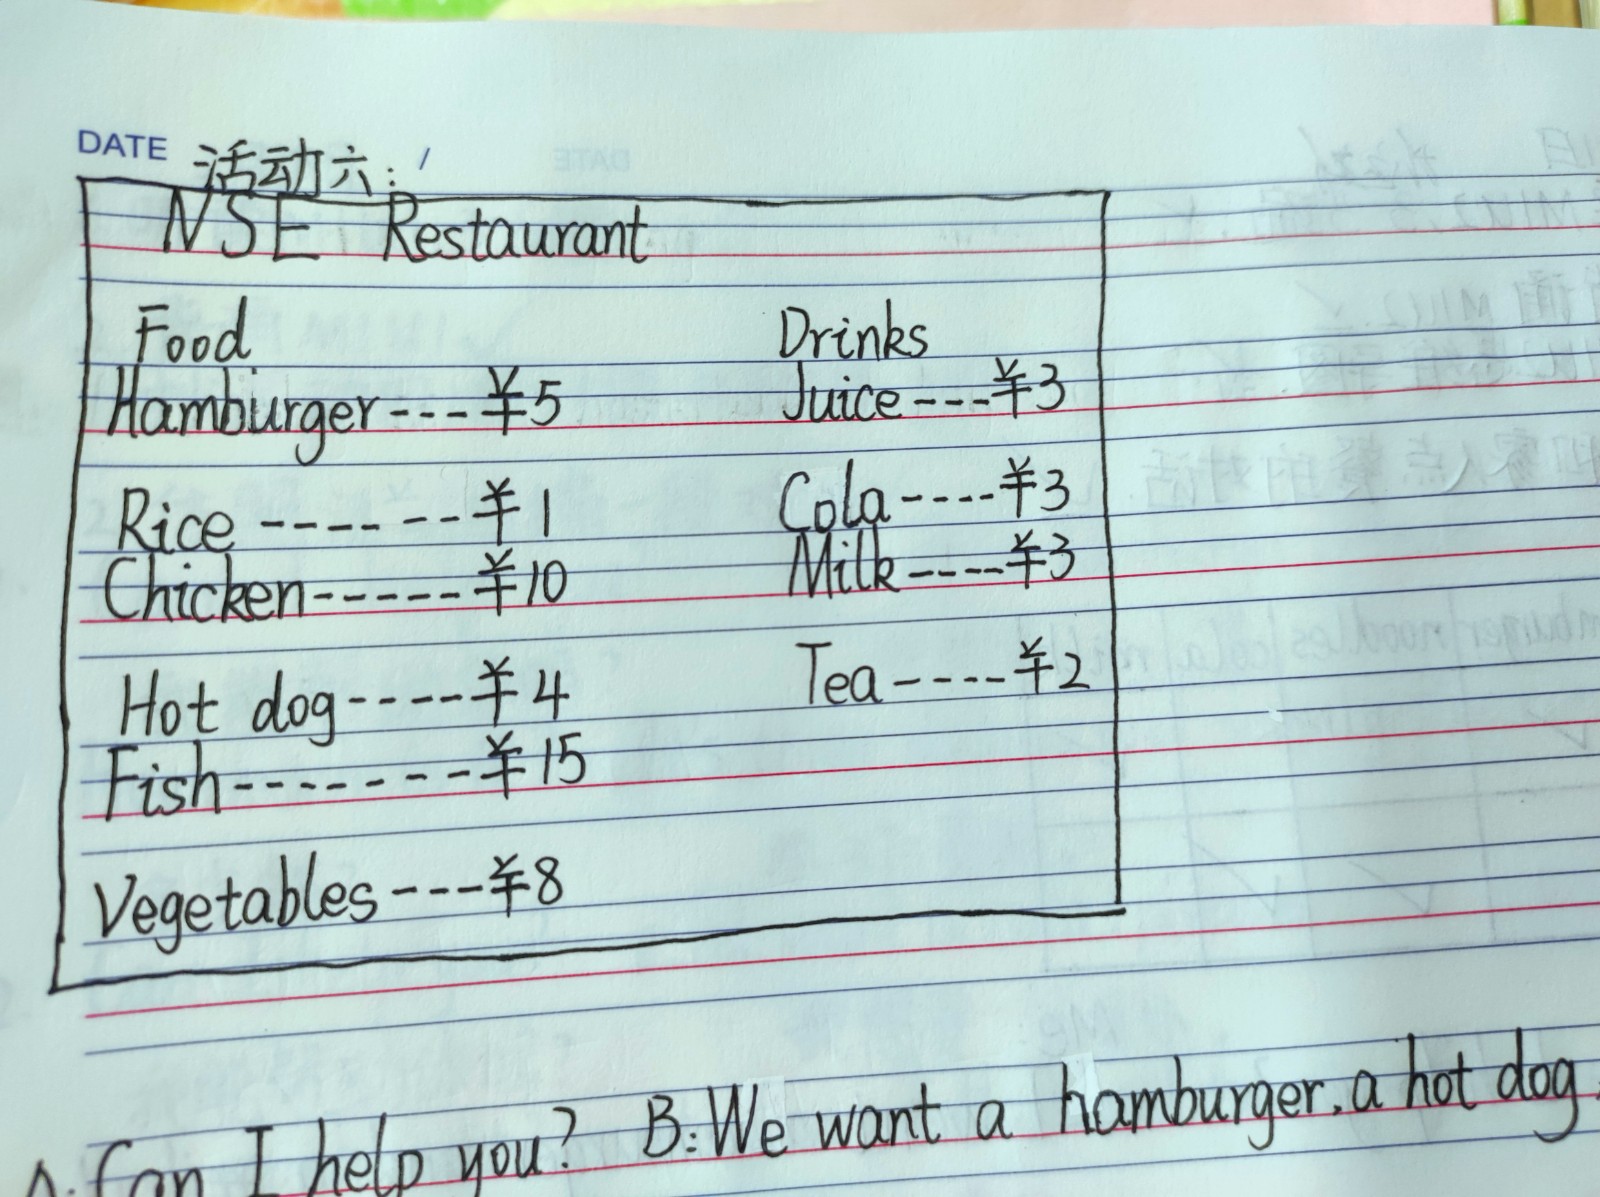 DATE 活动六: /
NSE Restaurant
Food Drinks
Hamburger---¥5 Juice---¥3
Rice -------¥1 Cola----¥3
Chicken-----¥10 Milk----¥3
Hot dog----¥4 Tea----¥2
Fish-------¥15
Vegetables---¥8
A: Can I help you? B: We want a hamburger, a hot dog